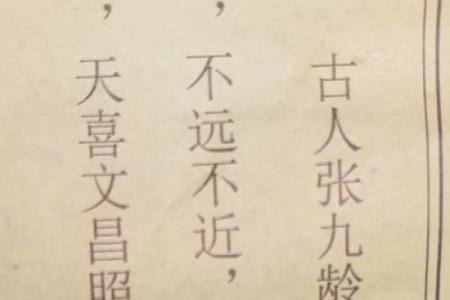 古人张九龄
，不远不近，
，天喜文昌照